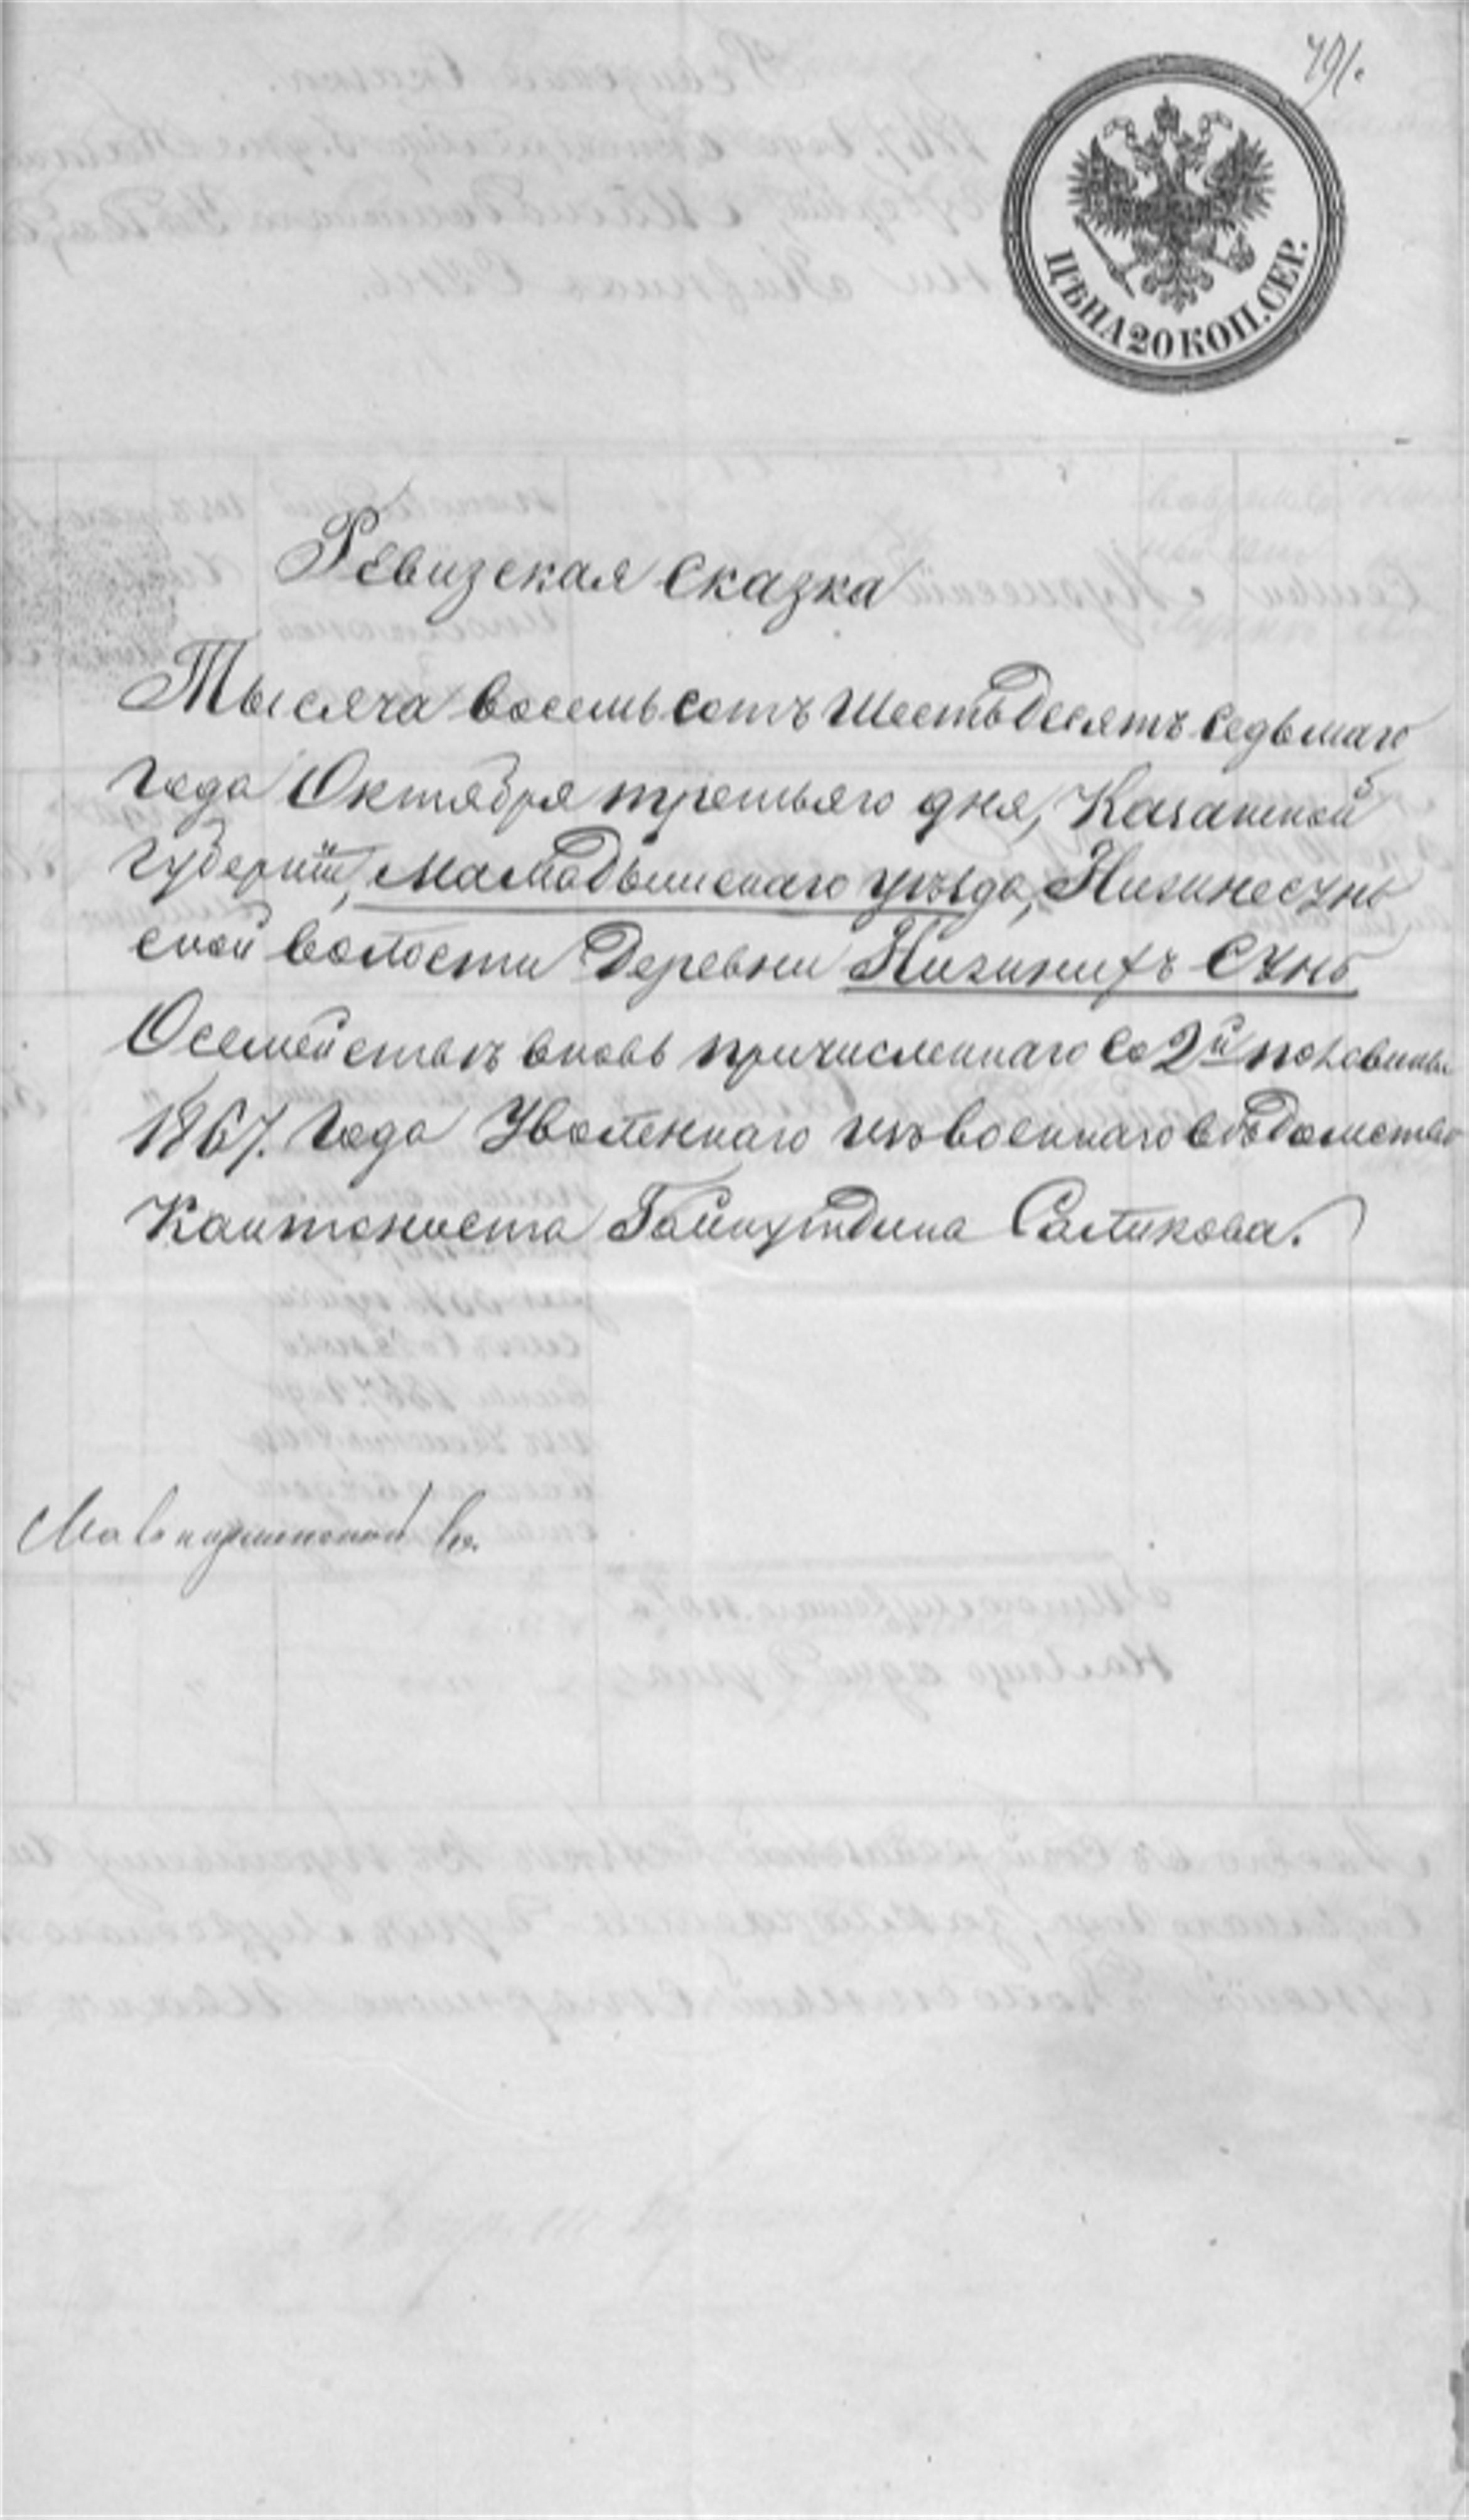 791.
ЦѢНА 20 КОП. СЕР.
Ревизская Сказка
Тысяча восемь сотъ шестьдесятъ седьмаго
года Октября третьяго дня, Казанской
губерніи, Мамадышскаго уѣзда, Нижнесунь
ской волости Деревни Нижнихъ Сунь
О семействѣ вновь причисленнаго со 2й половины
1867. года Уволеннаго изъ военнаго вѣдомства
Кантониста Гайнутдина Саликова.